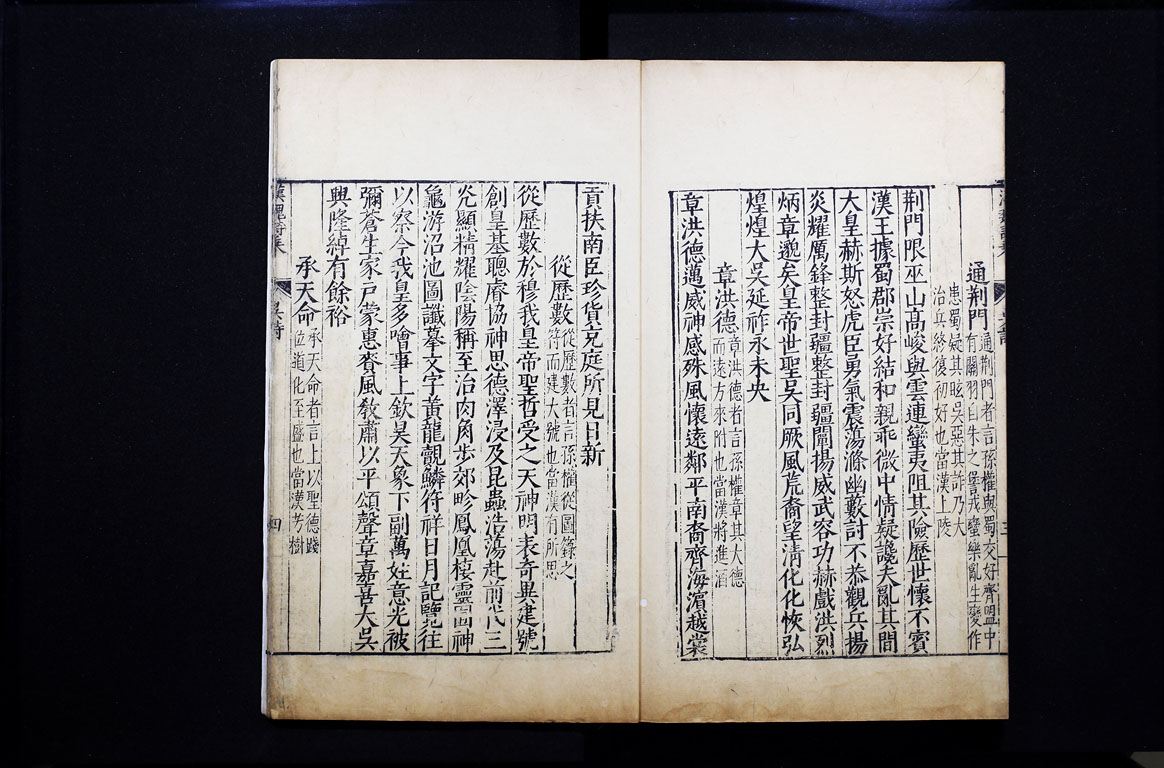 通荊門
通荊門者言孫權與蜀交好齊盟中
有關羽自失之愆戎蠻樂亂生變作
患蜀疑其眩吳惡其詐乃大
治兵終復初好也當漢上陵
荊門限巫山高峻與雲連蠻夷阻其險歷世懷不賓
漢王據蜀郡崇好結和親乖微中情疑讒夫亂其間
大皇赫斯怒虎臣勇氣震蕩滌幽藪討不恭觀兵揚
炎耀厲鋒整封疆整封疆闡揚威武容功赫戲洪烈
炳章邈矣皇帝世聖吳同厥風荒裔望清化化恢弘
煌煌大吳延祚永未央
章洪德
章洪德者言孫權章其大德
而遠方來附也當漢將進酒
章洪德邁威神感殊風懷遠鄰平南裔齊海濱越裳
貢扶南臣珍貨充庭所見日新
從歷數
從歷數者言孫權從圖籙之
符而建大號也當漢有所思
從歷數於穆我皇帝聖哲受之天神明表奇異建號
創皇基聰睿協神思德澤浸及昆蟲浩蕩赴前代三
光顯精耀陰陽稱至治肉角步郊畛鳳凰棲靈囿神
龜游沼池圖讖摹文字黃龍覿鱗符祥日月記覽往
以察今我皇多噲事上欽昊天象下副萬姓意光被
彌蒼生家戶蒙惠賚風敎肅以平頌聲章嘉喜大吳
興隆綽有餘裕
承天命
承天命者言上以聖德踐
位道化至盛也當漢芳樹
漢魏詩集
吳詩
四